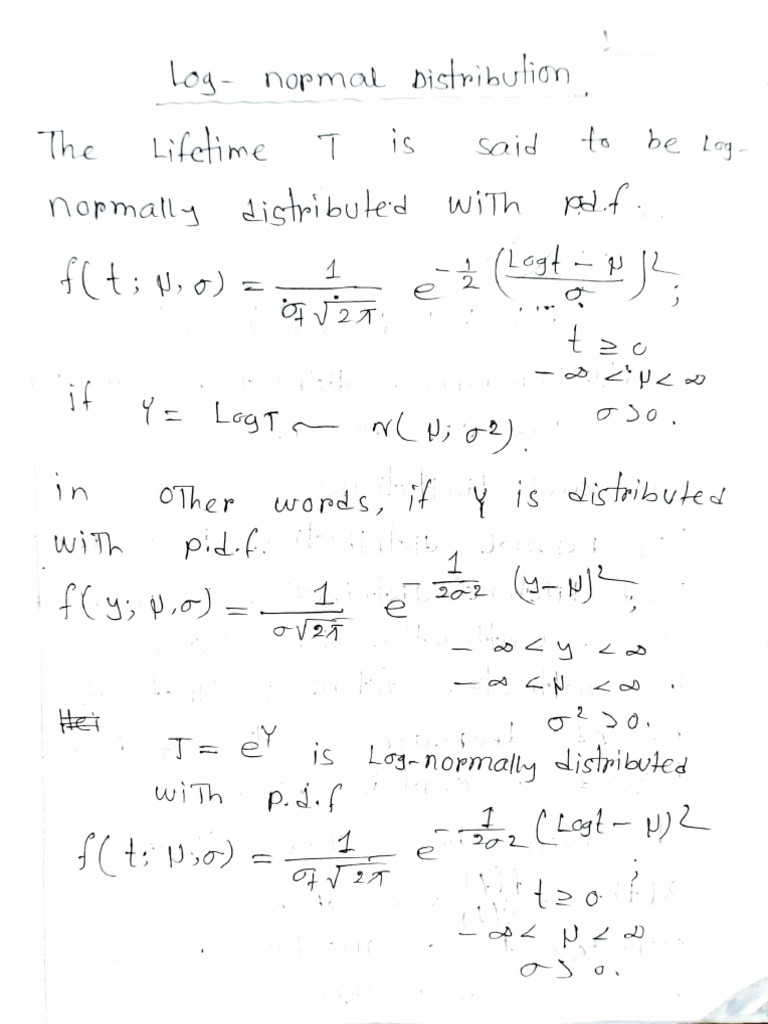 Log- normal Distribution.
The Lifetime T is said to be Log-
normally distributed with p.d.f.
f(t; μ, σ) = 1/(σt√2π) e^{-1/2 ((Logt - μ)/σ)^2};
t ≥ 0
-∞ < μ < ∞
if Y = LogT ~ N(μ; σ2). σ>0.
in other words, if Y is distributed
with p.d.f.
f(y; μ,σ) = 1/(σ√2π) e^{-1/(2σ2) (y-μ)^2};
-∞ < y < ∞
-∞ < μ < ∞.
σ^2 >0.
T = e^Y is Log-normally distributed
with p.d.f
f(t; μ,σ) = 1/(σt√2π) e^{-1/(2σ2) (Logt - μ)2};
t≥0
-∞< μ < ∞
σ> 0.